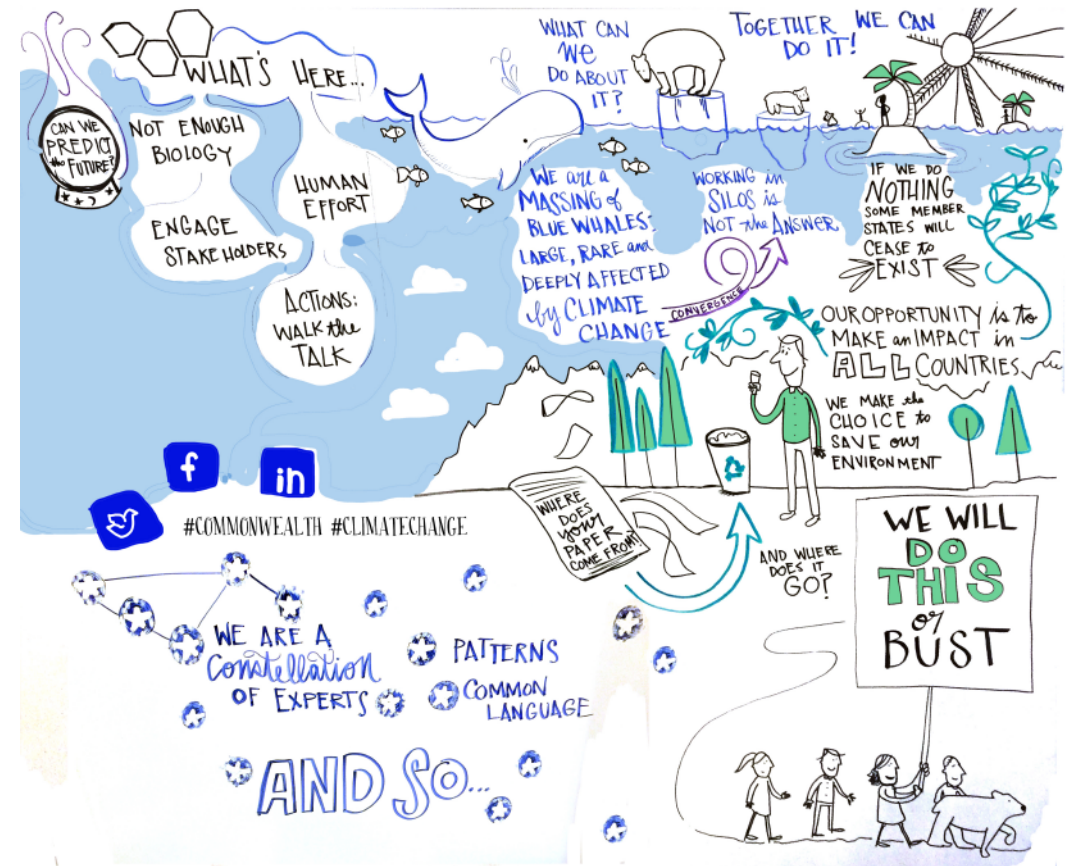 WHAT'S HERE...
CAN WE
PREDICT
the FUTURE?
NOT ENOUGH
BIOLOGY
ENGAGE
STAKEHOLDERS
HUMAN
EFFORT
ACTIONS:
WALK the
TALK
WHAT CAN
WE
DO ABOUT
IT?
TOGETHER WE CAN
DO IT!
WE are a
MASSING of
BLUE WHALES:
LARGE, RARE and
DEEPLY AFFECTED
by CLIMATE
CHANGE
WORKING in
SILOS is
NOT the ANSWER
CONVERGENCE
IF WE DO
NOTHING
SOME MEMBER
STATES WILL
CEASE to
EXIST
OUR OPPORTUNITY is to
MAKE an IMPACT in
ALL COUNTRIES
WE MAKE the
CHOICE to
SAVE our
ENVIRONMENT
WHERE
DOES
your
PAPER
COME FROM?
AND WHERE
DOES IT
GO?
f
in
#COMMONWEALTH #CLIMATECHANGE
WE ARE A
Constellation
OF EXPERTS
PATTERNS
COMMON
LANGUAGE
AND SO...
WE WILL
DO
THIS
or
BUST